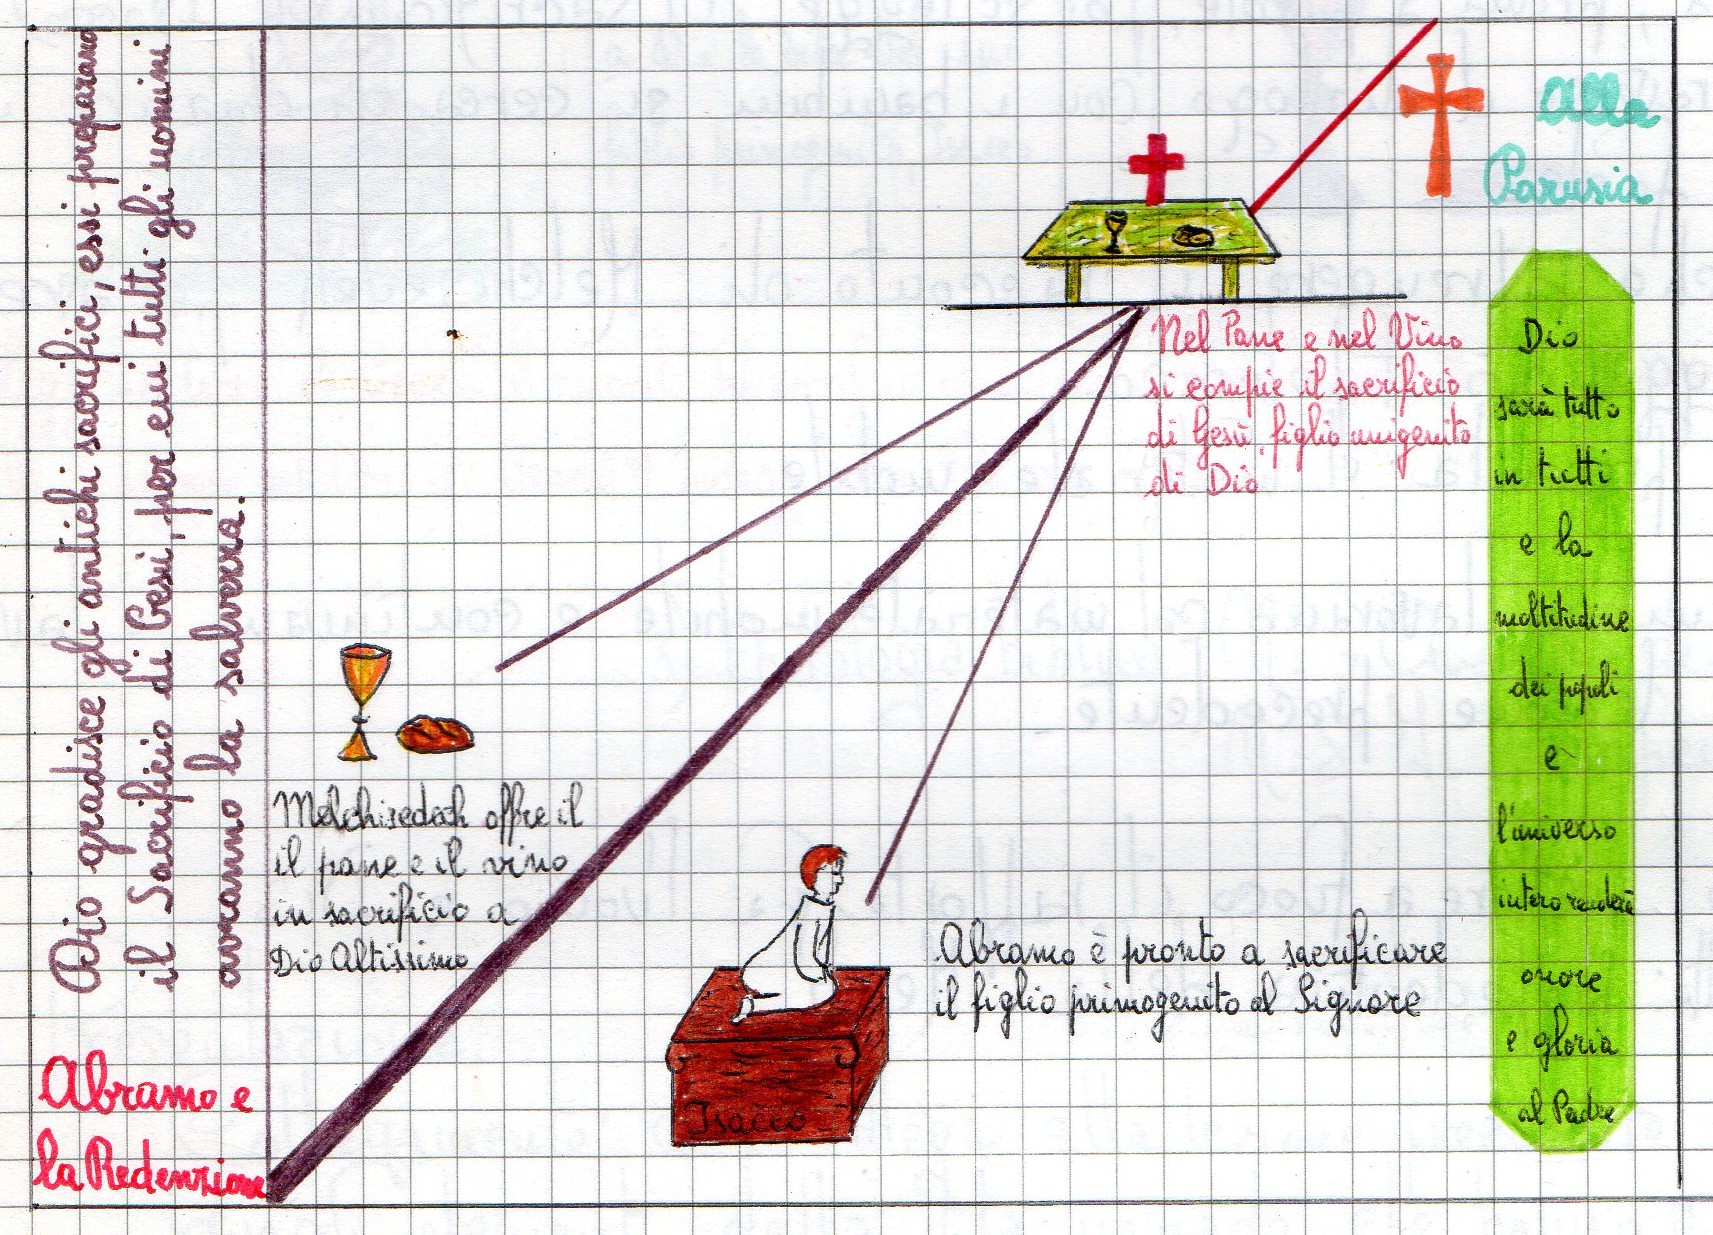 Dio gradisce gli antichi sacrifici, essi preparano
il Sacrificio di Gesù, per cui tutti gli uomini
avranno la salvezza.
Abramo e
la Redenzione
Melchisedech offre il
il pane e il vino
in sacrificio a
Dio Altissimo
Isacco
Abramo è pronto a sacrificare
il figlio primogenito al Signore
Nel Pane e nel Vino
si compie il sacrificio
di Gesù figlio unigenito
di Dio
alla
Parusia
Dio
sarà tutto
in tutti
e la
moltitudine
dei popoli
e
l'universo
intero renderà
onore
e gloria
al Padre